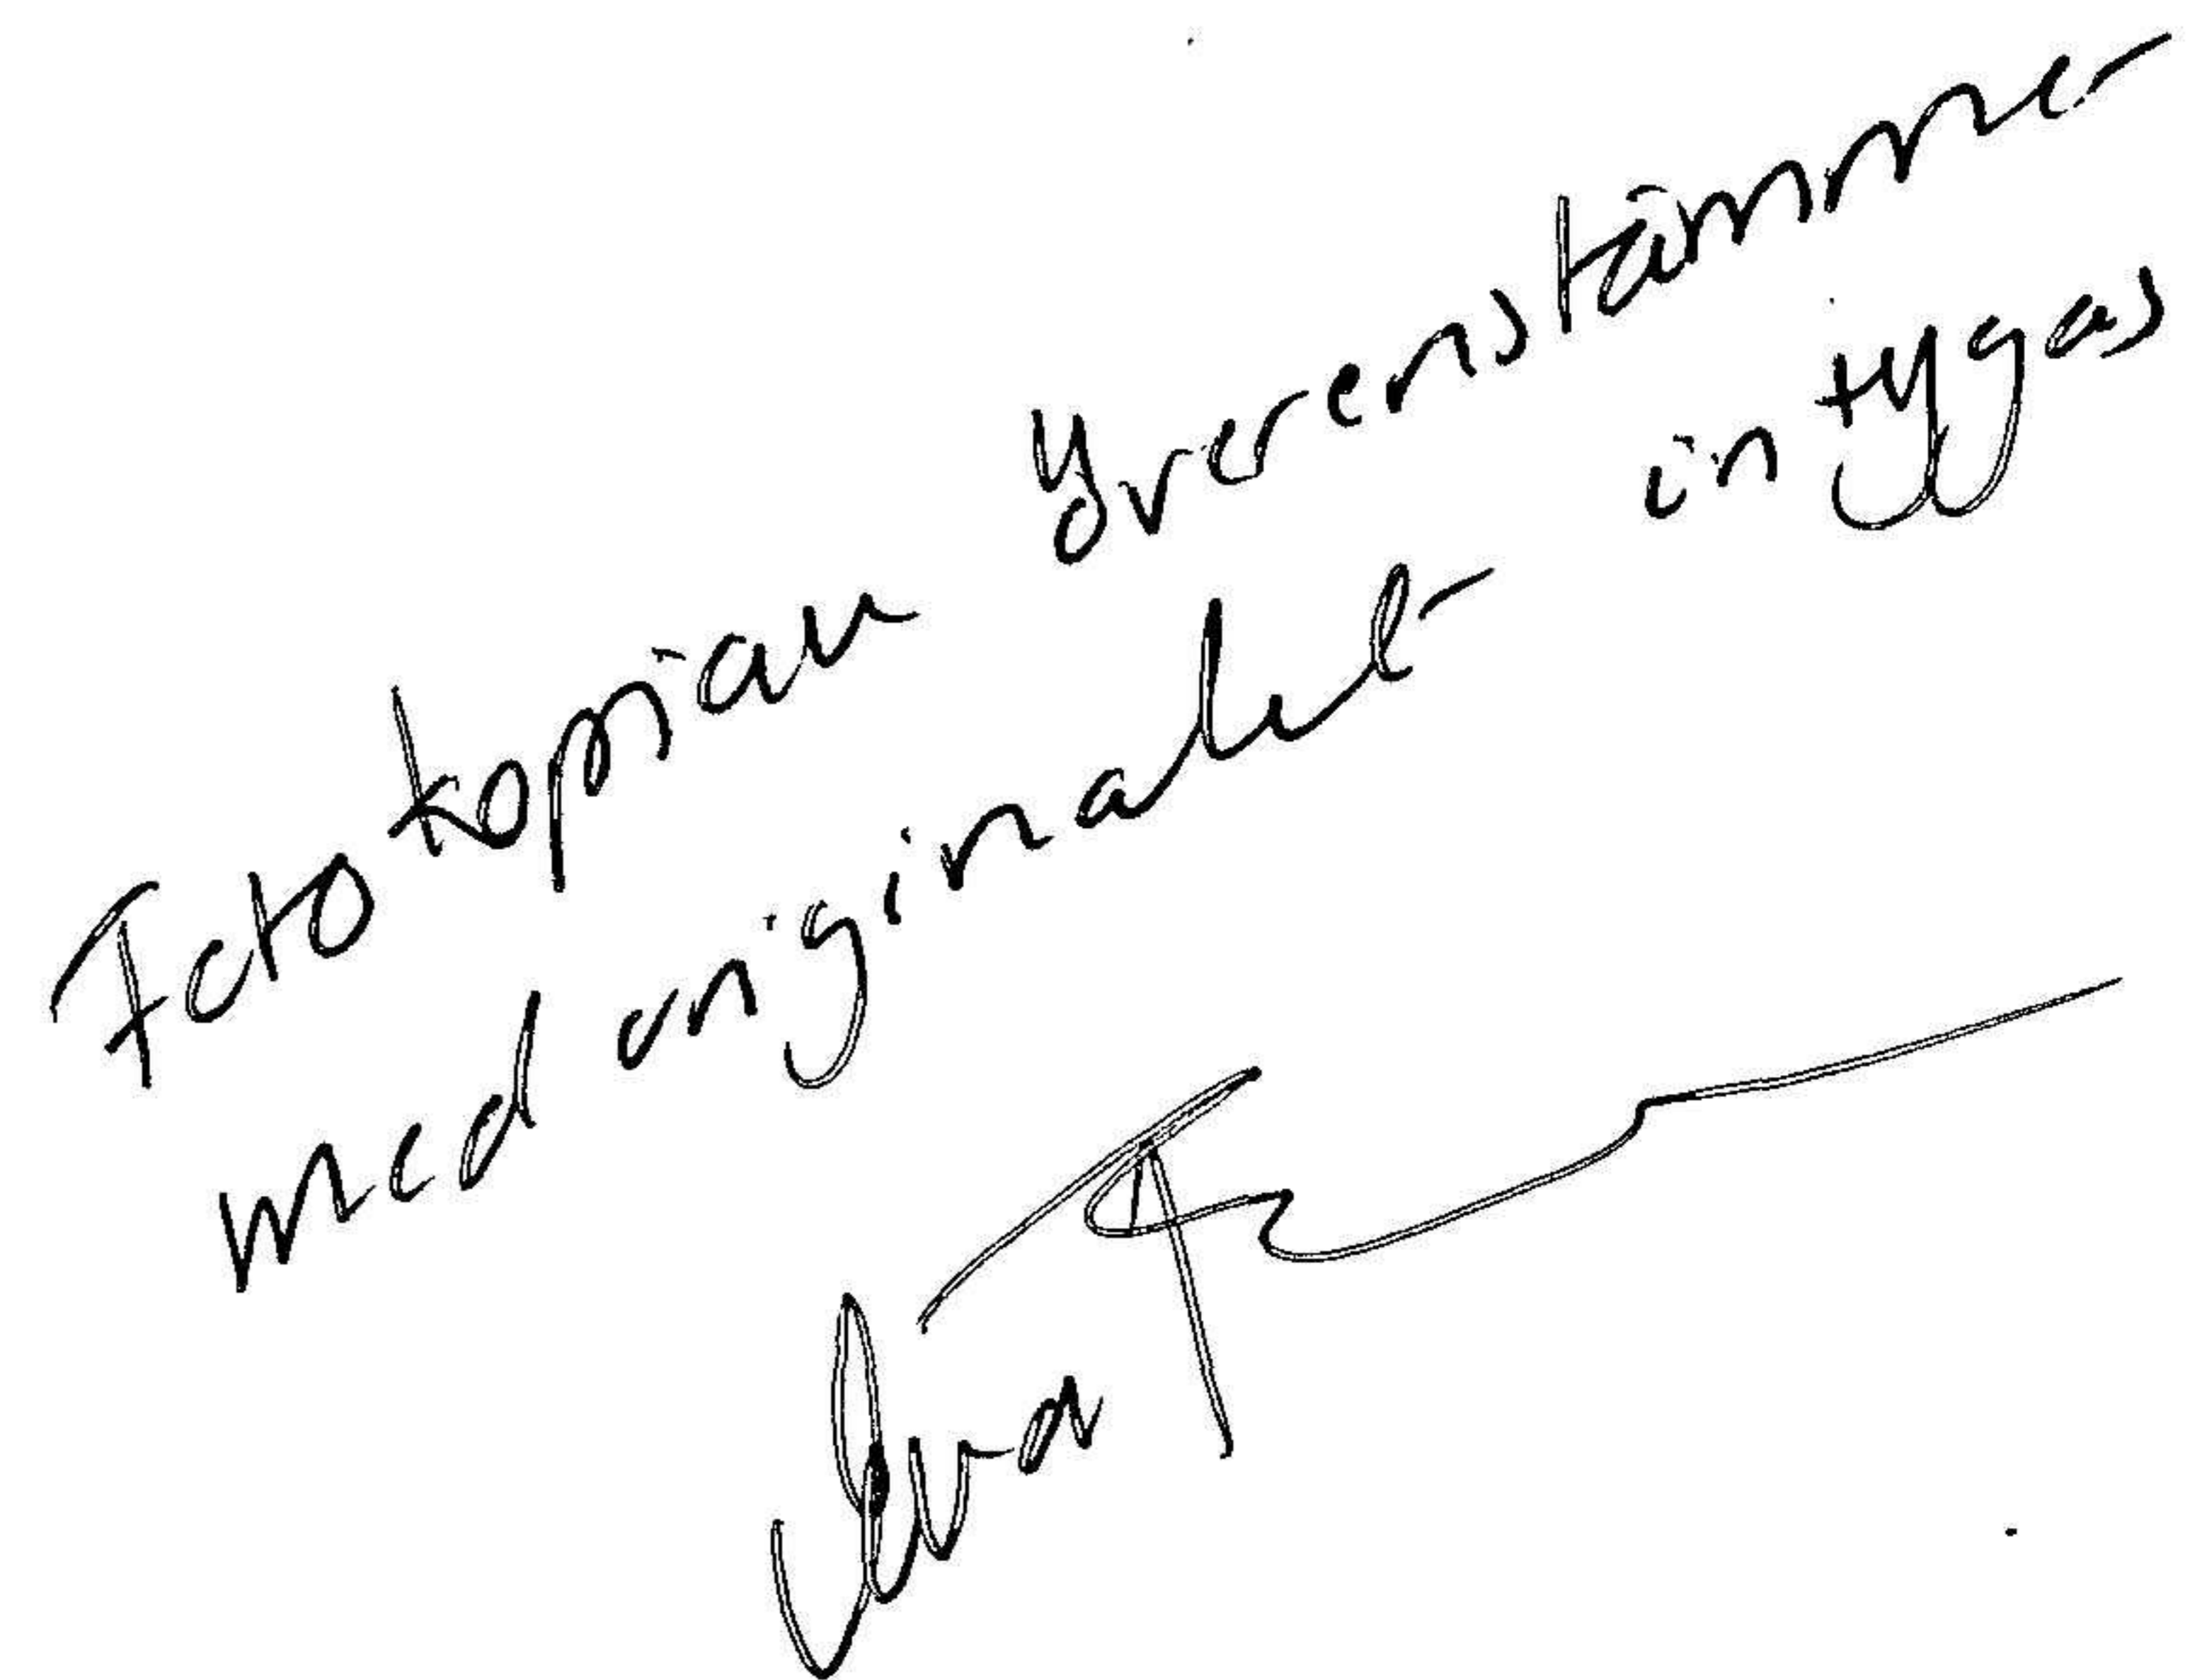 Fotokopian överensstämmer
med originalet intygas